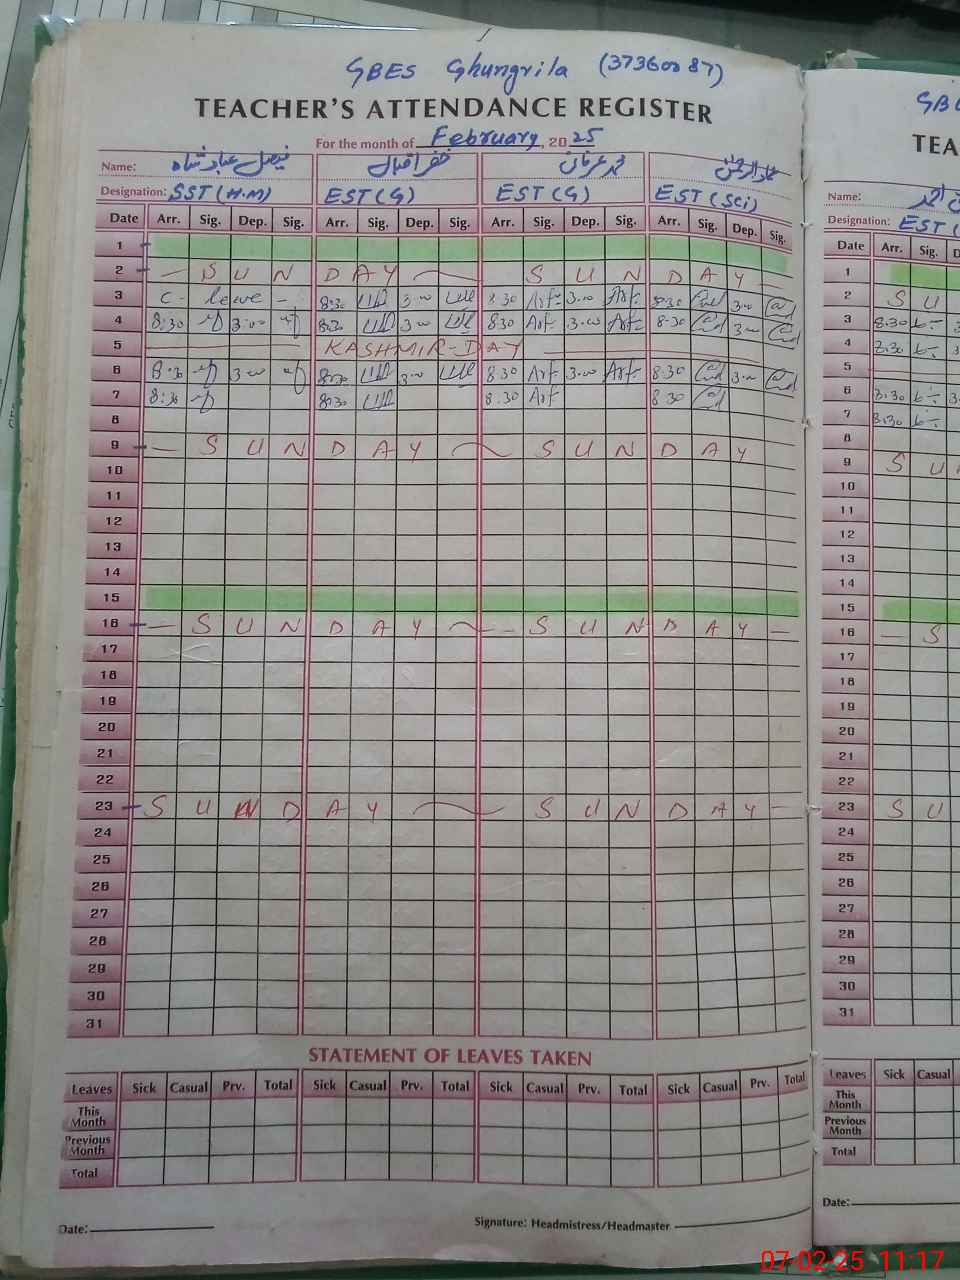 GBES Ghungrila (37360087)
TEACHER'S ATTENDANCE REGISTER
For the month of February, 2025
Name: فیصل عباد شاہ ظفر اقبال محمد عرفان
Designation: SST (H.M) EST (G) EST (G) EST (Sci)
Date Arr. Sig. Dep. Sig. Arr. Sig. Dep. Sig. Arr. Sig. Dep. Sig. Arr. Sig. Dep. Sig.
1
2 — S U N D A Y S U N D A Y —
3 C - leave - 8:30 3:00 8.30 Arf 3.00 Arf 8:30 3:00
4 8:30 3:00 8:30 3:00 8:30 Arf 3:00 Arf 8:30 3:00
5 KASHMIR-DAY
6 8:30 3:00 8:30 3:00 8:30 Arf 3:00 Arf 8:30 3:00
7 8:30 8:30 8.30 Arf 8 30
8
9 — S U N D A Y S U N D A Y
10
11
12
13
14
15
16 — S U N D A Y - S U N D A Y —
17
18
19
20
21
22
23 S U N D A Y S U N D A Y -
24
25
26
27
28
29
30
31
STATEMENT OF LEAVES TAKEN
Leaves Sick Casual Prv. Total Sick Casual Prv. Total Sick Casual Prv. Total Sick Casual Prv. Total
This
Month
Previous
Month
Total
Date: Signature: Headmistress/Headmaster
GB
TEA
Name:
Designation: EST (
Date Arr. Sig. D
1
2 S U
3 8:30
4
5
6 8.30
7 8.30
8
9 S U
10
11
12
13
14
15
16 — S
17
18
19
20
21
22
23 S U
24
25
26
27
28
29
30
31
Leaves Sick Casual
This
Month
Previous
Month
Total
Date:
07-02-25 11:17